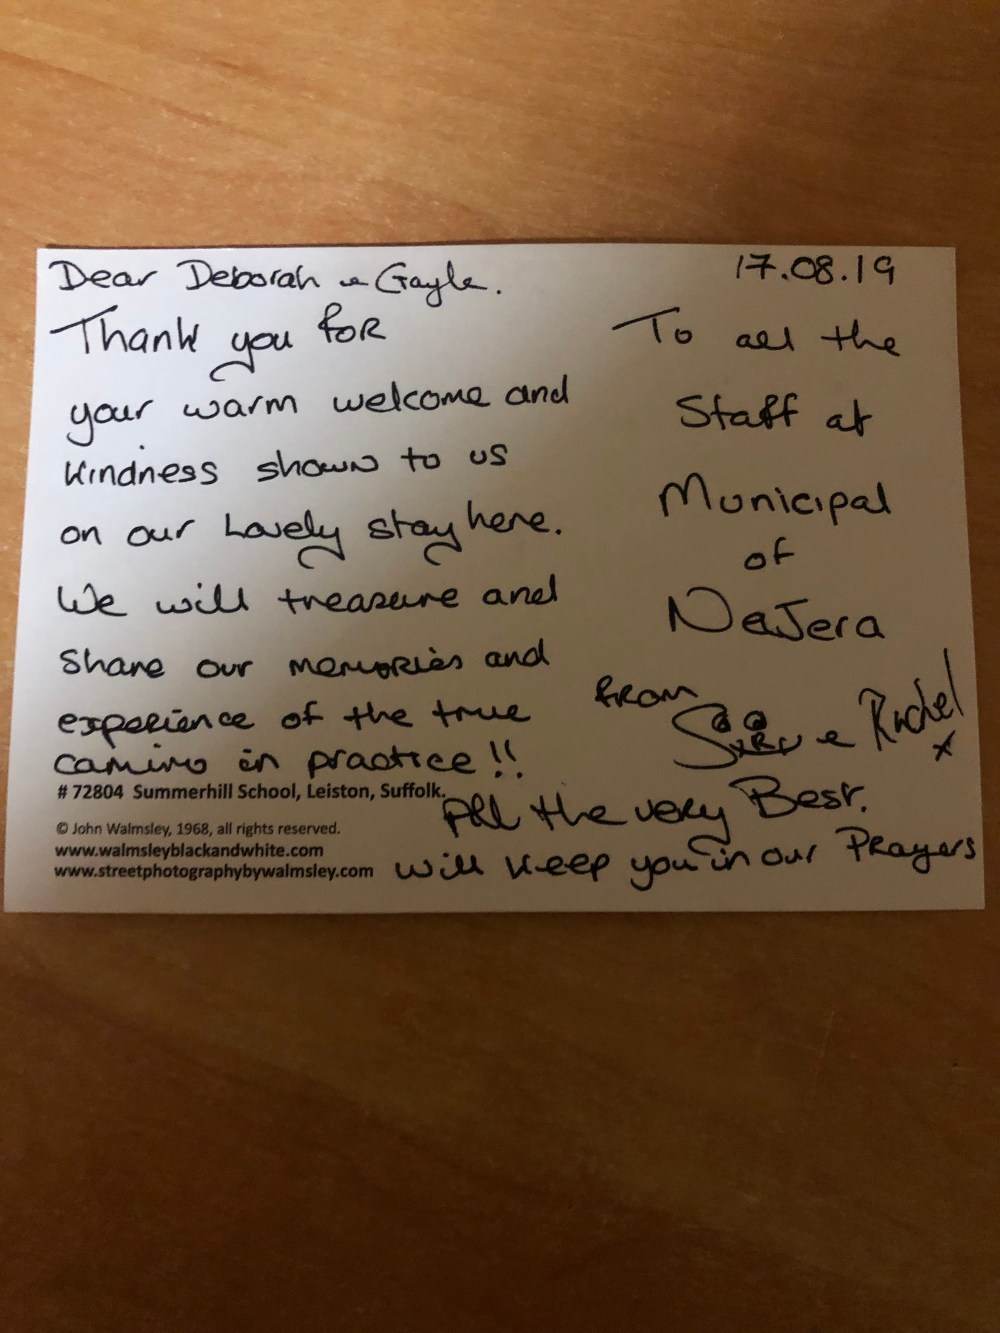 Dear Deborah & Gayle.
Thank you for
your warm welcome and
kindness shown to us
on our Lovely stay here.
We will treasure and
share our memories and
experience of the true
camino in practice!!
17.08.19
To all the
Staff at
Municipal
of
NaJera
from
& Rachel
x
All the very Best.
will keep you in our Prayers
# 72804 Summerhill School, Leiston, Suffolk.
© John Walmsley, 1968, all rights reserved.
www.walmsleyblackandwhite.com
www.streetphotographybywalmsley.com